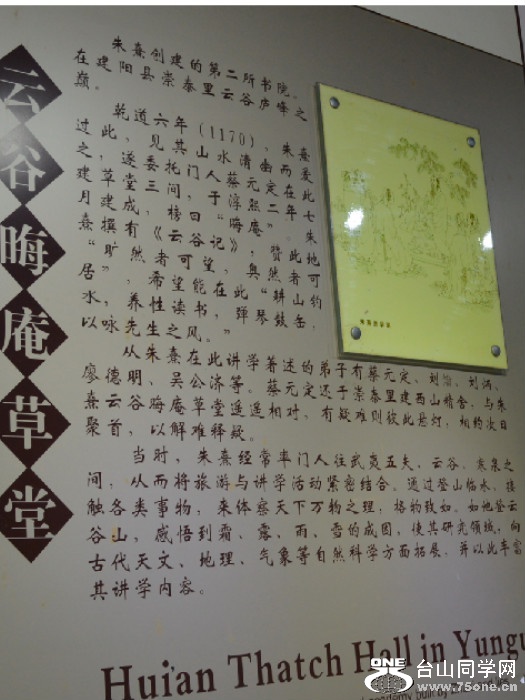 云谷晦庵草堂
朱熹创建的第二所书院。
在建阳县崇泰里云谷庐峰之
巅。
乾道六年(1170),朱熹
过此,见其山水清幽而爱
之,遂委托门人蔡元定在此
建草堂三间,于淳熙二年七
月建成,榜曰“晦庵”。朱
熹撰有《云谷记》,赞此地
“旷然者可望,奥然者可
居”,希望能在此“耕山钓
水,养性读书,弹琴鼓缶,
以咏先生之风。”
从朱熹在此讲学著述的弟子有蔡元定、刘、刘炳、
廖德明、吴公济等。蔡元定还于崇泰里建西山精舍,与朱
熹云谷晦庵草堂遥遥相对,有疑难则彼此悬灯,相约次日
聚首,以解难释疑。
当时,朱熹经常率门人往武夷五夫、云谷、寒泉之
间,从而将旅游与讲学活动紧密结合。通过登山临水,接
触各类事物,来体察天下万物之理,格物致知。如他登云
谷山,感悟到霜、露、雨、雪的成因,使其研究领域,向
古代天文、地理、气象等自然科学方面拓展,并以此丰富
其讲学内容。
Hui'an Thatch Hall in Yungu
academy built by
ONE
台山同学网
www.75one.cn